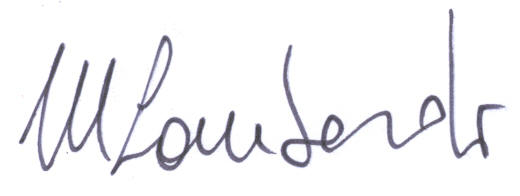 M Lombardi